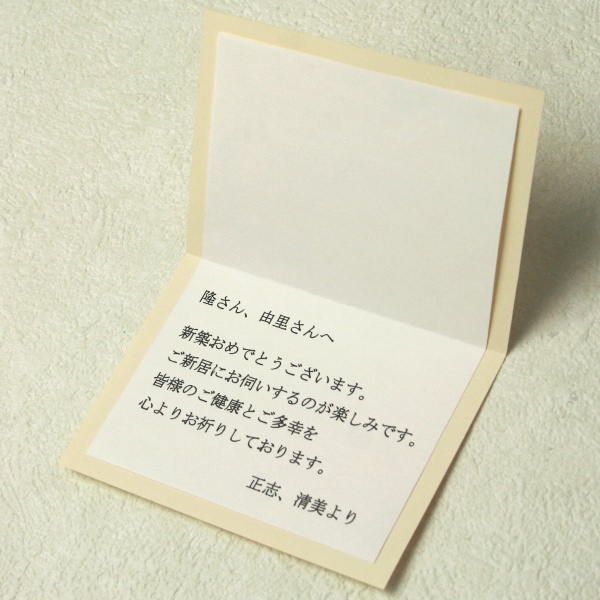 隆さん、由里さんへ
新築おめでとうございます。
ご新居にお伺いするのが楽しみです。
皆様のご健康とご多幸を
心よりお祈りしております。
正志、清美より